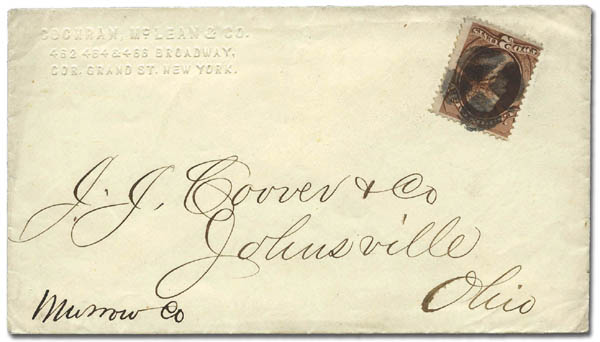 COCHRAN, McLEAN & CO.
462 464 & 466 BROADWAY,
COR. GRAND ST. NEW YORK.
J. J. Coover & Co
Johnsville
Ohio
Murrow Co